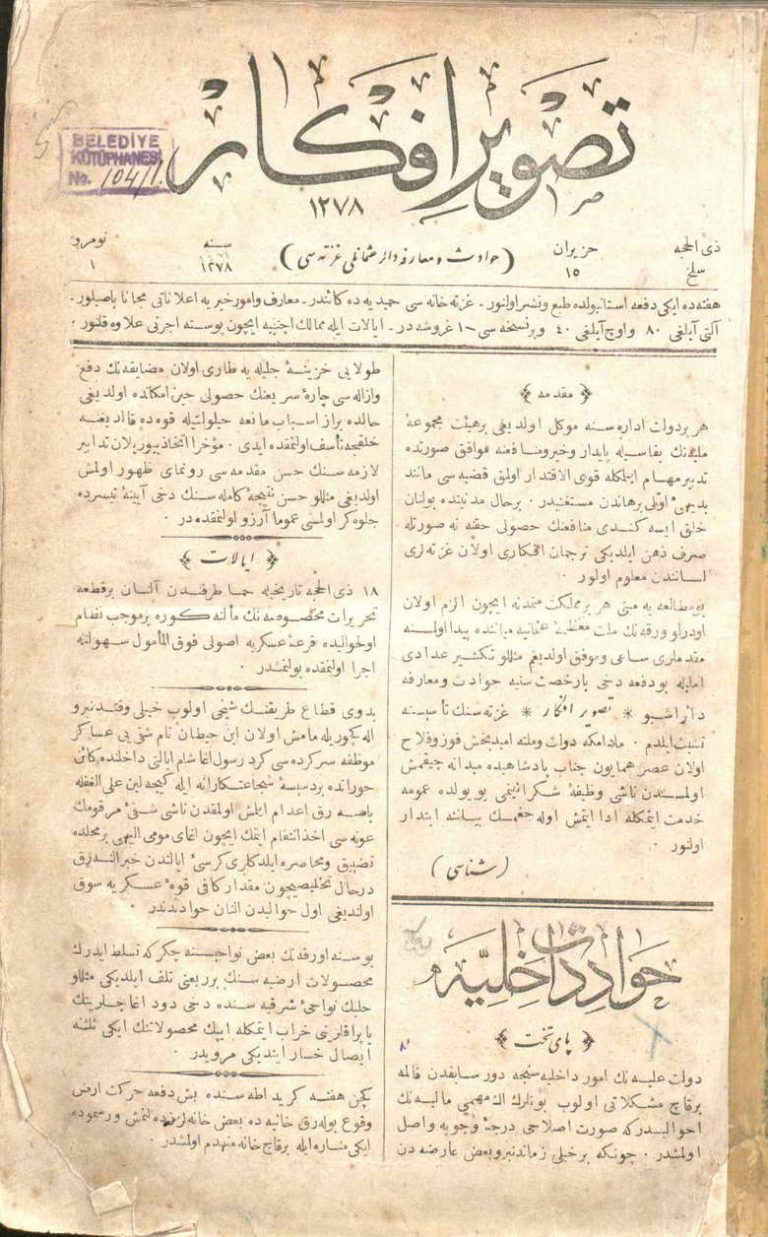 تصویر افكار
۱۲۷۸
BELEDİYE
KÜTÜPHANESİ
No. 104/1
ذی الحجه
سلخ
حزیران
۱۵
(حوادث و معارفه دائر عثمانلی غزته سی)
سنه
۱۲۷۸
نومرو
۱
هفته ده ایكی دفعه استانبولده طبع و نشر اولنور ۰ غزته خانه سی حمیدیه ده كائندر ۰ معارف و امور خیریه اعلاناتی مجانا باصیلور ۰
آلتی آیلغی ۸۰ و اوچ آیلغی ۴۰ و بر نسخه سی ۱۰ غروشه در ۰ ایالات ایله ممالك اجنبیه ایچون پوسته اجرتی علاوه قلنور ۰
﴿ مقدمه ﴾
هر بر دولت اداره سنه موكل اولدیغی بر هیئت مجموعهٔ
ملیه نك بقاسیله پایدار و خیر و منافعنه موافق صورتده
تدبیر مهام ایتمكله قوی الاقتدار اولمق قضیه سی مانند
بدیهیٔ اولی برهاندن مستغنیدر ۰ بر حال مدنیتده بولنان
خلق ایسه كندی منافعنك حصولی حقنه نه صورتله
صرف ذهن ایلدیكی ترجمان افكاری اولان غزته لری
لسانندن معلوم اولور ۰
بو مطالعه یه مبنی هر بر مملكت متمدنه ایچون الزم اولان
او درلو ورقه نك ملت معظمهٔ عثمانیه میاننده پیدا اولمسنه
مقدملری ساعی و موفق اولدیغم مثللو تكثیر عدادی
املیله بو دفعه دخی با رخصت سنیه حوادث و معارفه
دائر اشبو * تصویر افكار * غزته سنك تأسیسنه
تشبث ایلدم ۰ مادامكه دولت و ملته امیدبخش فوز و فلاح
اولان عصر همایون جناب پادشاهیده میدانه چیقمش
اولمسندن ناشی وظیفهٔ شكرانیتمی بو یولده عمومه
خدمت ایتمكله ادا ایتمش اوله جغمك بیاننه ابتدار
اولنور ۰
(شناسی)
حوادث داخلیه
﴿ پای تخت ﴾
دولت علیه نك امور داخلیه سنجه دور سابقدن قالمه
بر قاچ مشكلاتی اولوب بونلرك اك مهمی مالیه نك
احوالیدر كه صورت اصلاحی درجهٔ وجوبه واصل
اولمشدر ۰ چونكه بر خیلی زماندنبرو بعض عارضه دن
طولایی خزینهٔ جلیله یه طاری اولان مضایقه نك دفع
و ازاله سی چارهٔ سریعنك حصولی حیز امكانده اولدیغی
حالده براز اسباب مانعه حیلولتیله قوه ده قالدیغنه
خلقجه تأسف اولنمقده ایدی ۰ مؤخرا اتخاذ بیوریلان تدابیر
لازمه سنك حسن مقدمه سی رونمای ظهور اولمش
اولدیغی مثللو حسن نتیجهٔ كامله سنك دخی آیینهٔ تیسرده
جلوه كر اولمسی عموما آرزو اولنمقده در ۰
﴿ ایالات ﴾
۱۸ ذی الحجه تاریخیله حما طرفندن آلنان بر قطعه
تحریرات مخصوصه نك مألنه كوره بر موجب نظام
اوحوالیده قرعهٔ عسكریه اصولی فوق المأمول سهولتله
اجرا اولنمقده بولنمشدر ۰
بدوی قطاع طریقنك شیخی اولوب خیلی وقتدنبرو
اله كچوریله مامش اولان ابن حیطان نام شقی یی عساكر
موظفه سركرده سی كرد رسول اغا شام ایالتی داخلنده كائن
حورانده بر دسیسهٔ شجاعتكارانه ایله كیجه لین علی الغفله
باصه رق اعدام ایلمش اولمقدن ناشی شقیٔ مرقومك
عونه سی اخذ انتقام ایتمك ایچون اغای مومی الیهی بر محلده
تضییق و محاصره ایلدكلری كرسیٔ ایالتدن خبر النه رق
درحال تخلیصیچون مقدار كافی قوهٔ عسكریه سوق
اولندیغی اول حوالیدن النان حوادثدندر ۰
بو سنه اورفه نك بعض نواحیسنه چكركه تسلط ایدرك
محصولات ارضیه سنك بر ربعنی تلف ایلدیكی مثللو
حلبك نواحیٔ شرقیه سنده دخی دود اغاجلرینك
یاپراقلرنی خراب ایتمكله ایپك محصولاتنك ایكی ثلثنه
ایصال خسار ایتدیكی مرویدر ۰
كچن هفته كرید اطه سنده بش دفعه حركت ارض
وقوع بوله رق خانیه ده بعض خانه لر زده لنمش و رسموده
ایكی مناره ایله بر قاچ خانه منهدم اولمشدر ۰